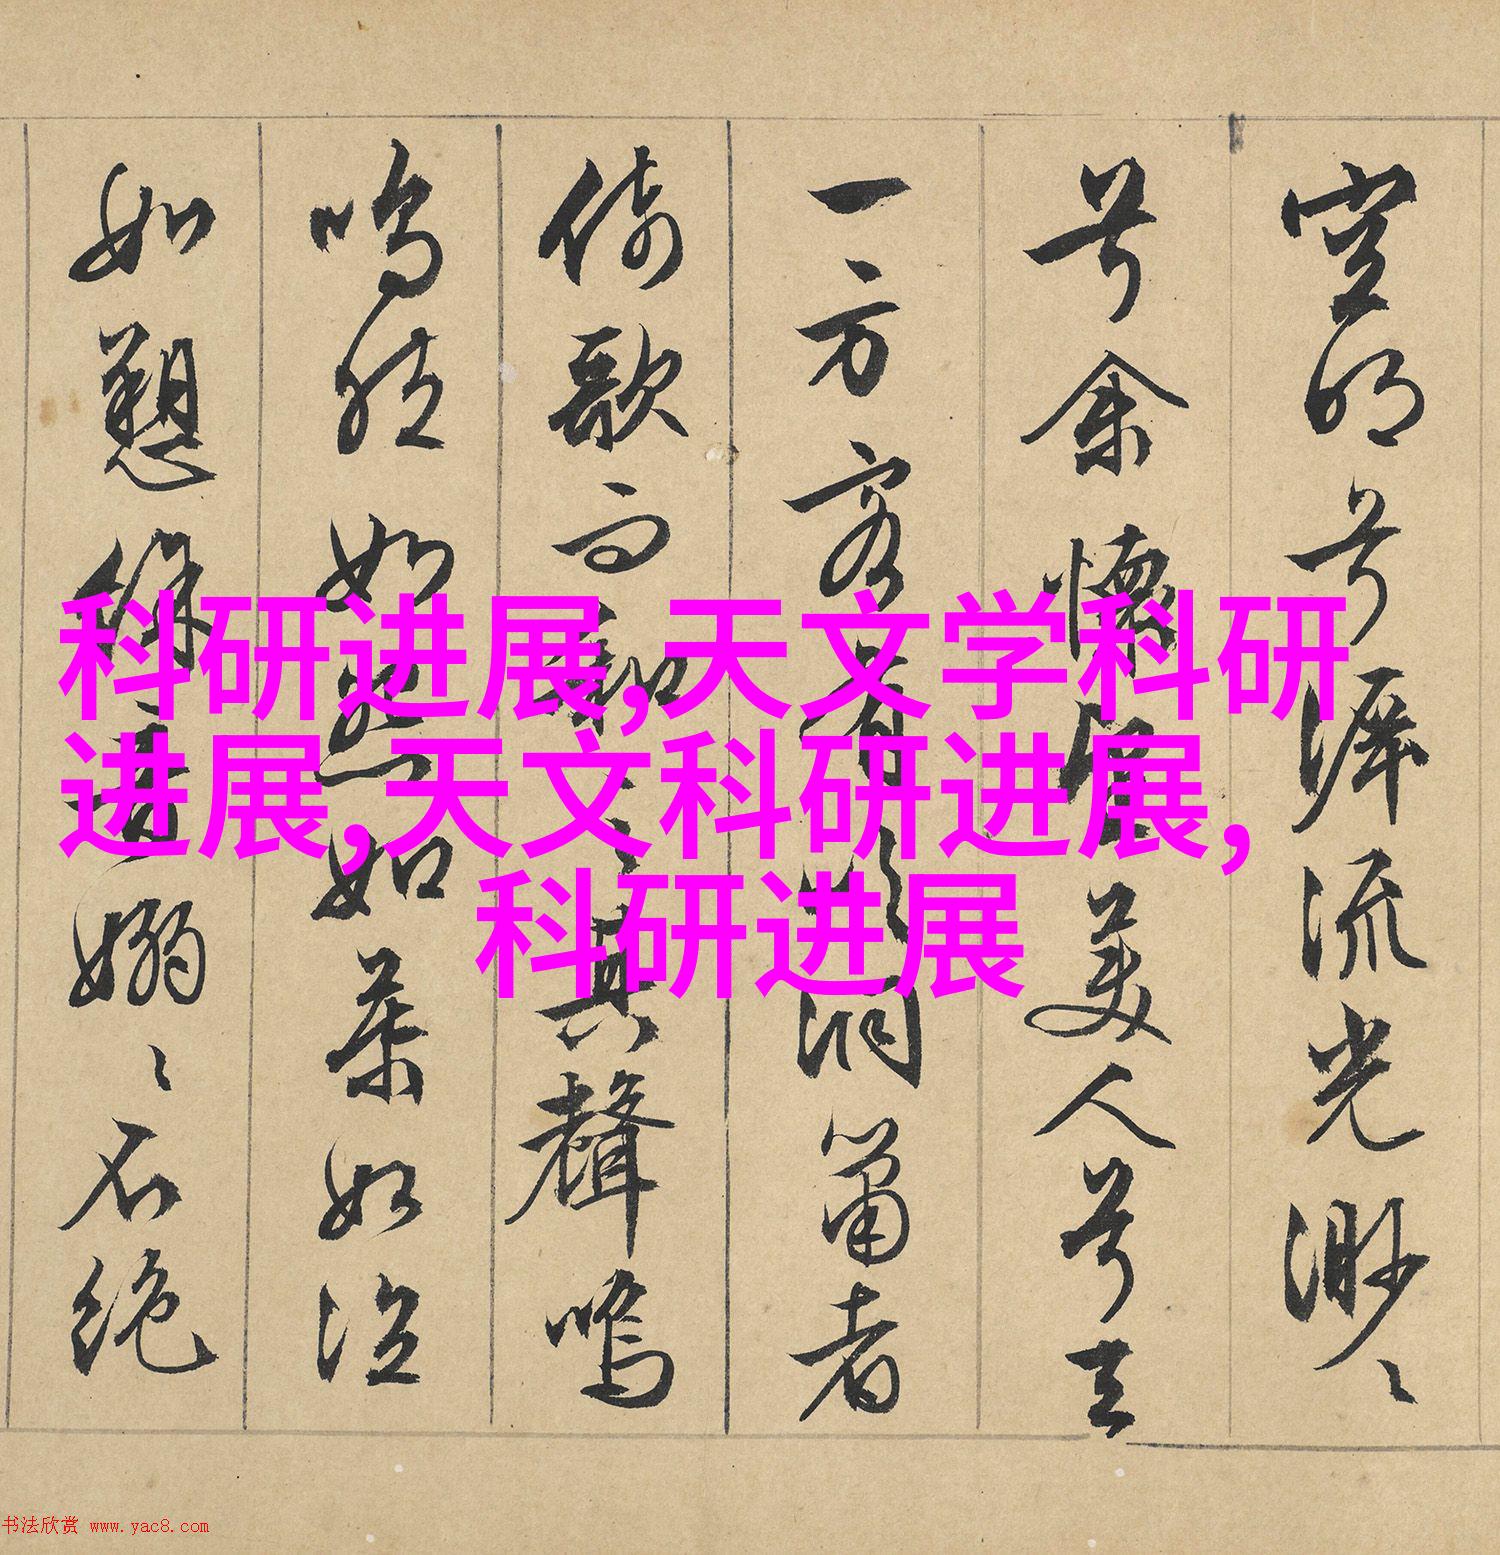 科研进展,天文学科研
进展,天文科研进展,
科研进展
空明兮泝流光渺〻
兮余懷望美人兮天
一方客有吹洞簫者
倚歌而和之其聲嗚
嗚然如怨如慕如泣
如愬餘音嫋〻不絕
书法欣赏 www.yac8.com